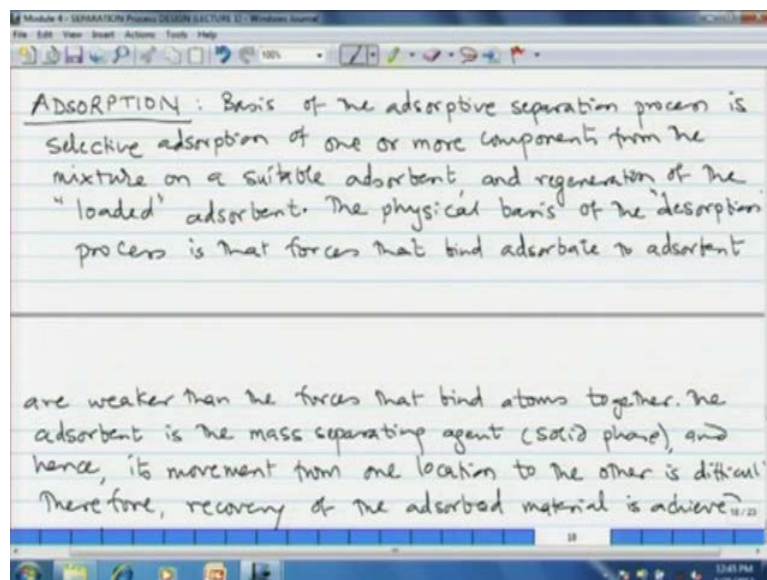 Module 4 - SEPARATION Process DESIGN (LECTURE 1) - Windows Journal
File Edit View Insert Actions Tools Help
100%
ADSORPTION : Basis of the adsorptive separation process is
selective adsorption of one or more components from the
mixture on a suitable adsorbent, and regeneration of the
"loaded" adsorbent. The physical basis of the "desorption"
process is that forces that bind adsorbate to adsorbent
are weaker than the forces that bind atoms together. The
adsorbent is the mass separating agent (solid phase), and
hence, its movement from one location to the other is difficul
Therefore, recovery of the adsorbed material is achieve
18/23
18
12:45 PM